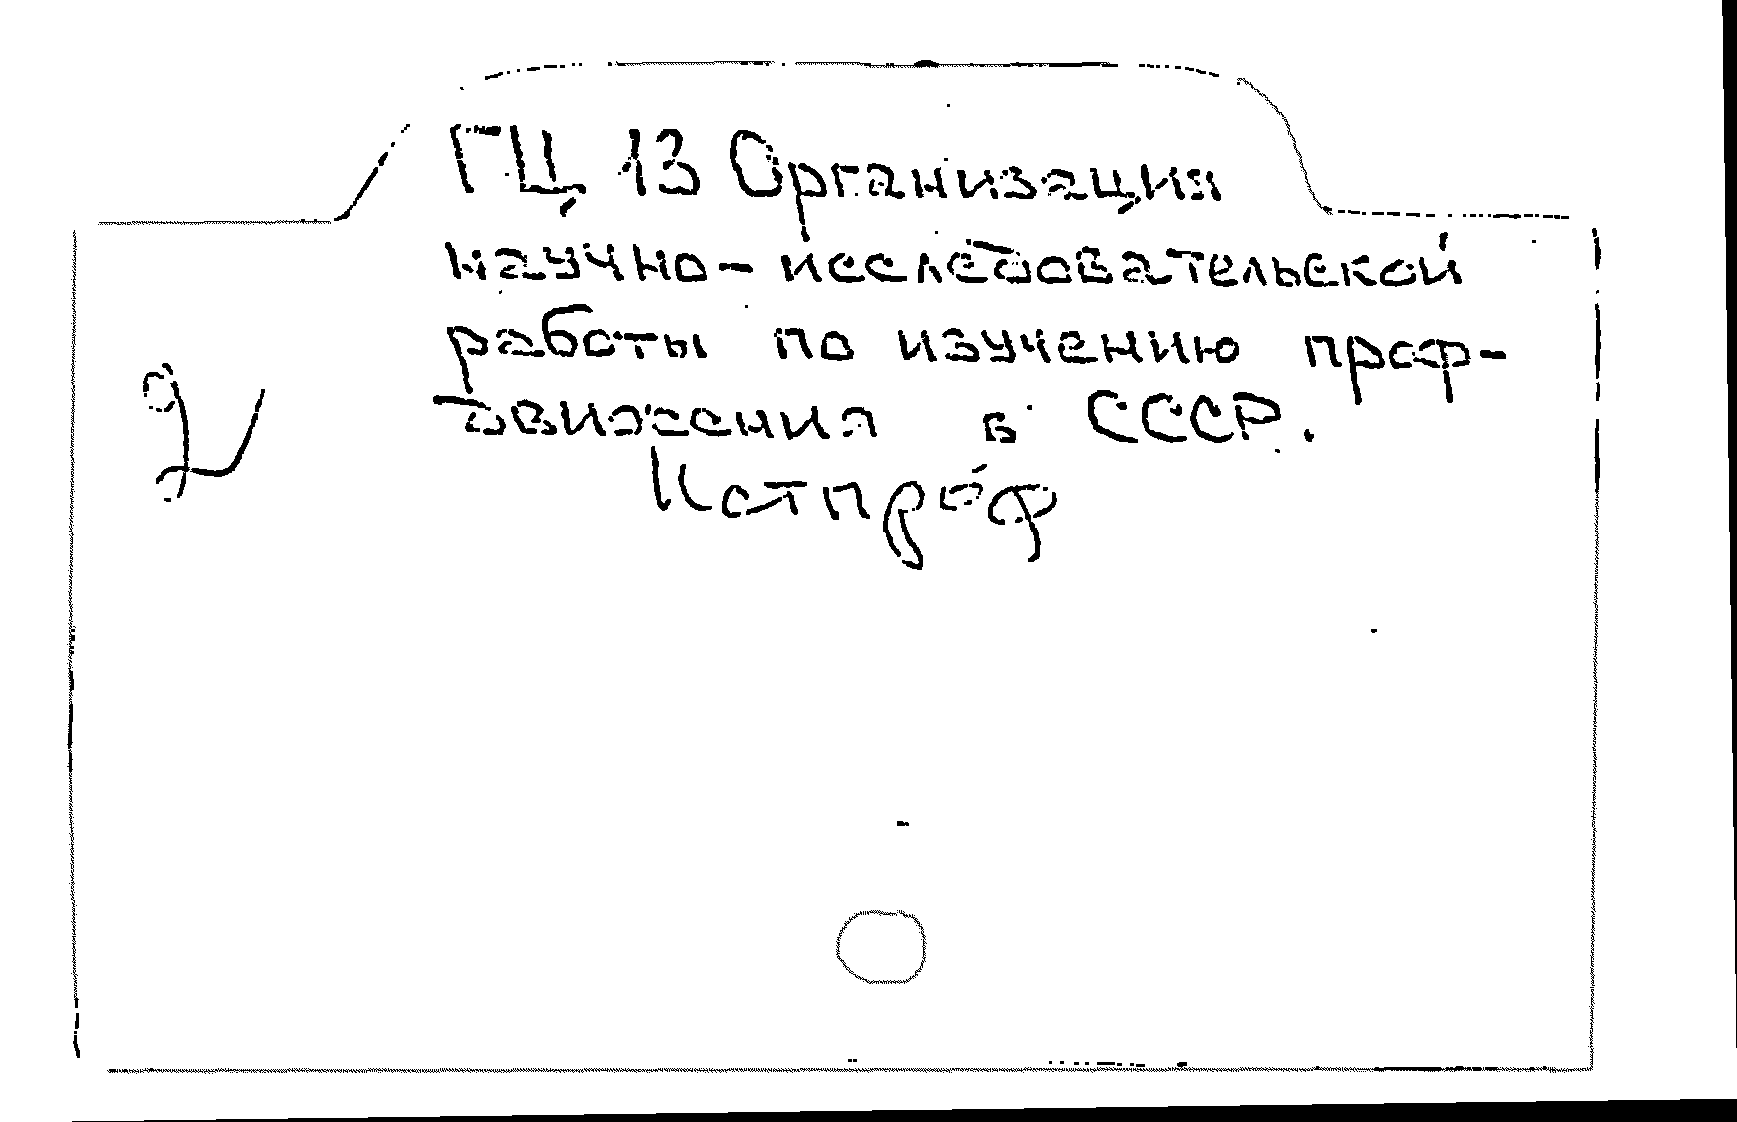 ГЦ 13 Организация
научно-исследовательской
работы по изучению проф-
движения в СССР.
Истпроф
2